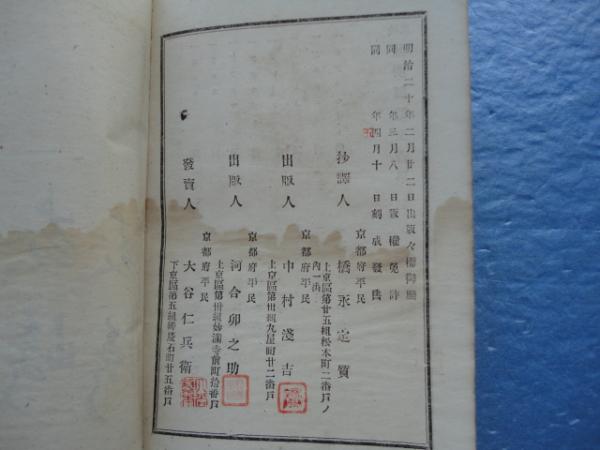 明治二十年二月廿二日出版々權御願
同 年三月八日版權免許
同 年四月十日刻成發售
抄譯人 京都府平民 橋永定質
上京區第廿五組松本町二番戸ノ
内一街
出版人 京都府平民 中村淺吉
上京區第卅組丸屋町廿二番戸
出版人 京都府平民 河合卯之助
上京區第卅組妙滿寺前町拾番戸
發賣人 京都府平民 大谷仁兵衛
下京區第五組麩屋石町廿五番戸